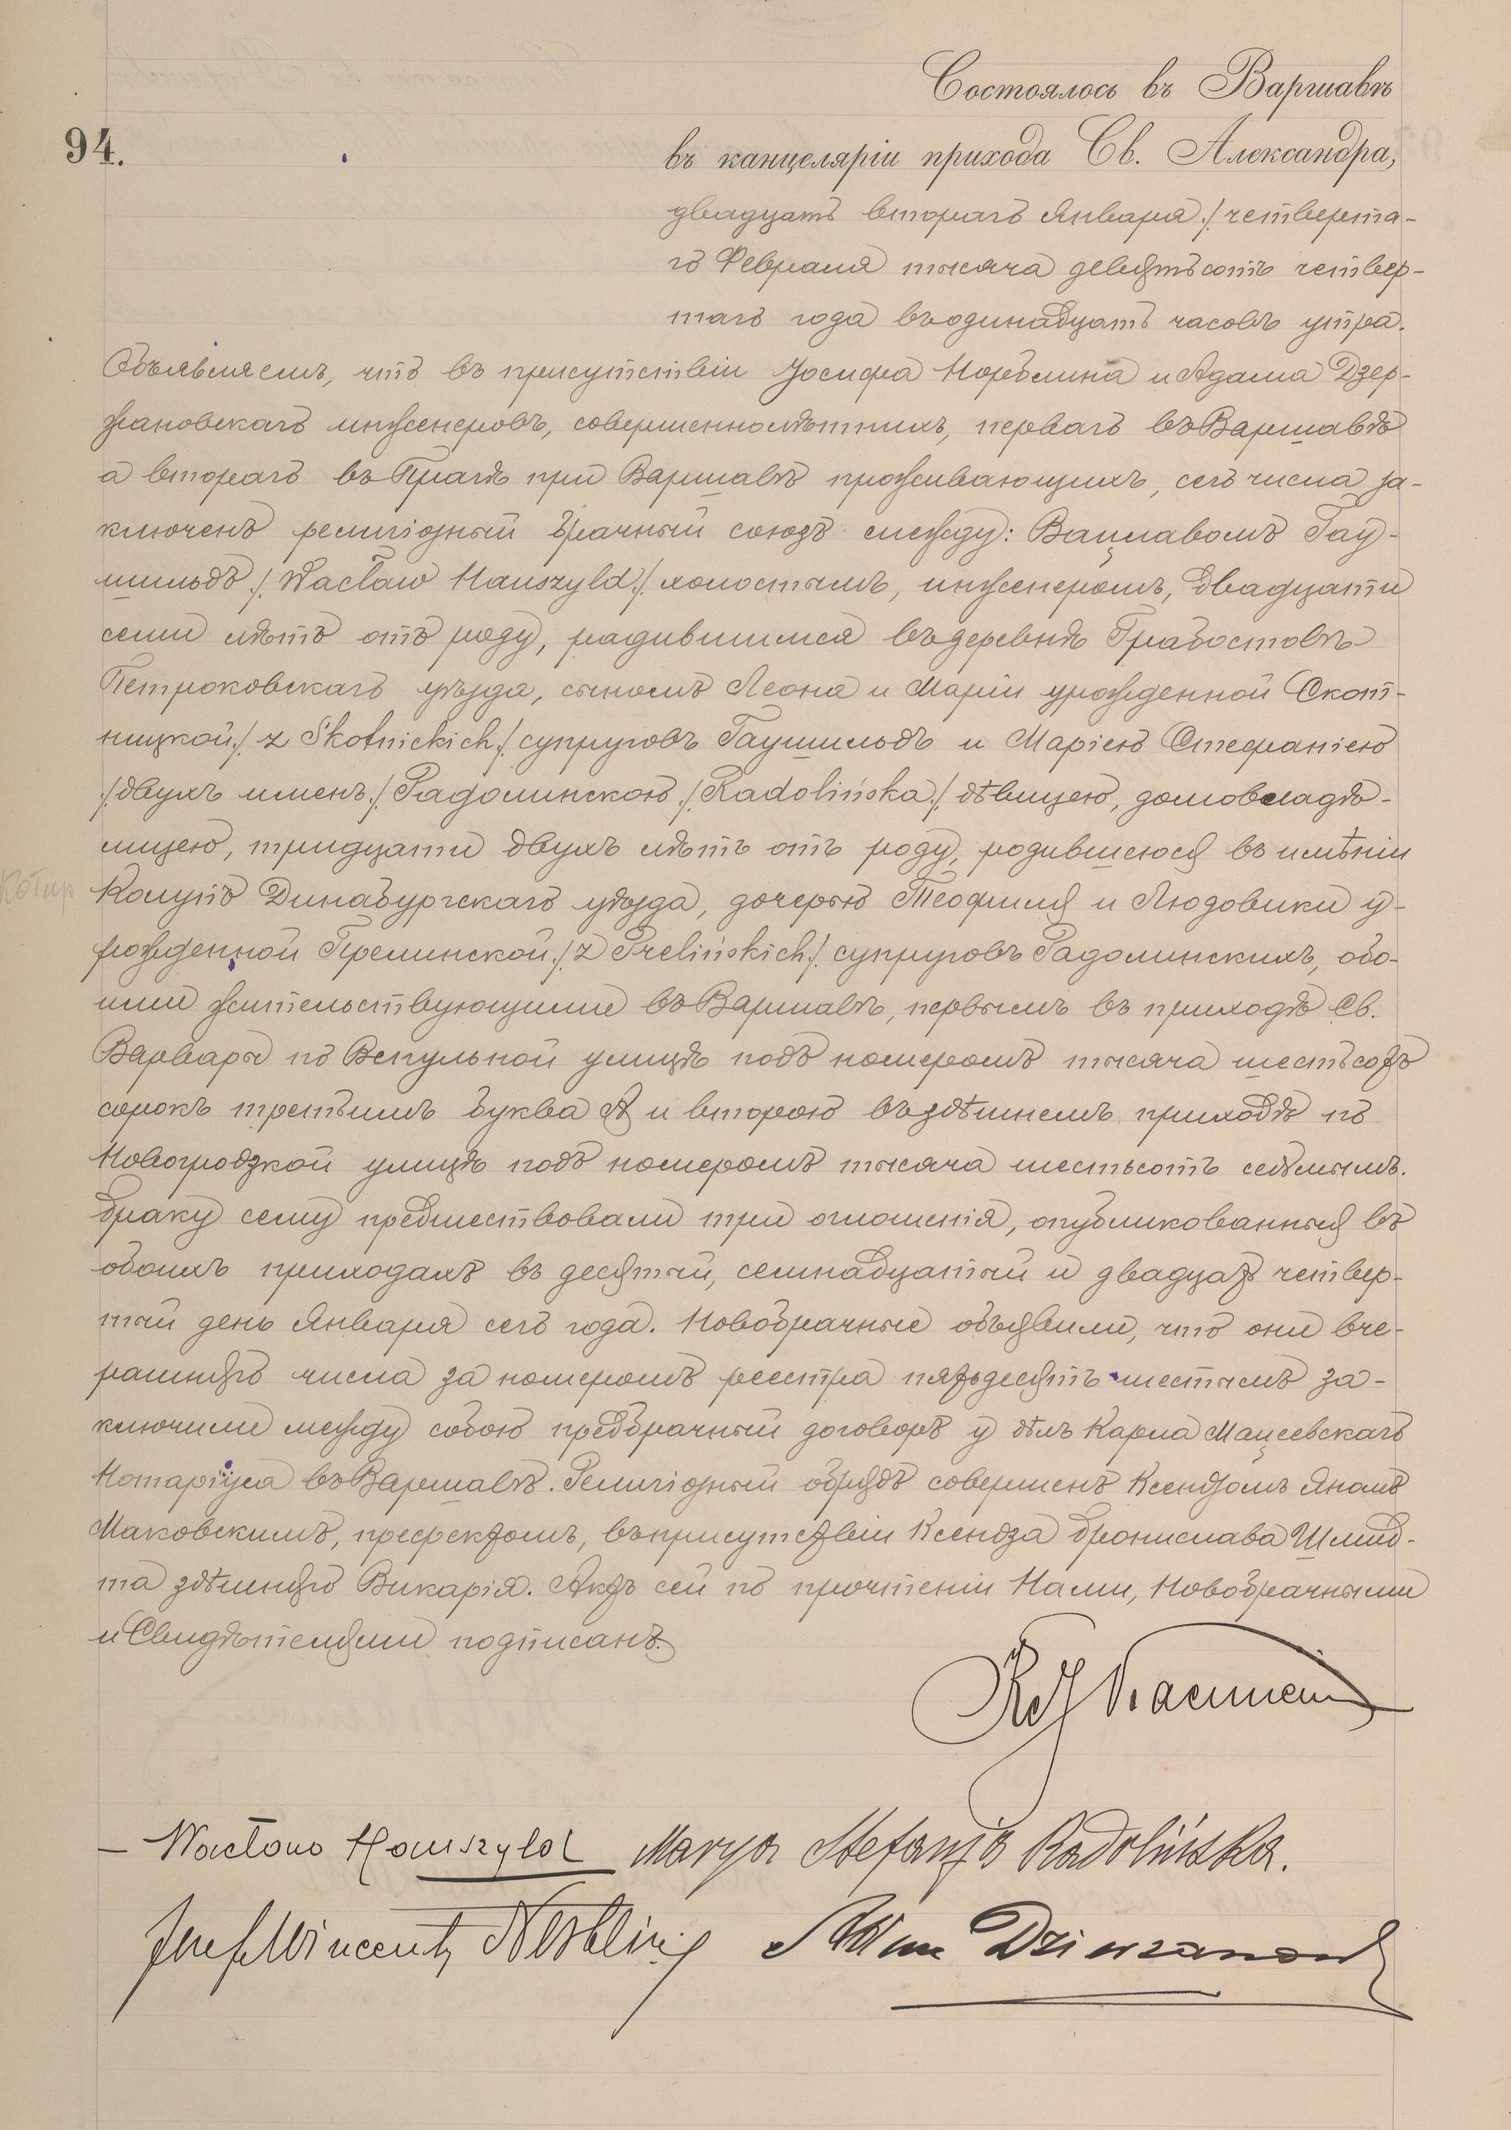 Состоялось въ Варшавѣ
94.
въ канцеляріи прихода Св. Александра,
двадцать второго Января ./ четверта-
го Февраля тысяча девятьсотъ четвер-
таго года въ одинадцать часовъ утра.
Объявляемъ, что въ присутствіи Іосифа Норблина и Адама Дзер-
жановскаго инженеровъ, совершеннолѣтнихъ, перваго въ Варшавѣ
а второго въ Прагѣ при Варшавѣ проживающихъ, сего числа за-
ключенъ религіозный брачный союзъ между: Вацлавомъ Гау-
шильдъ ./ Wacław Hauszyld ./ холостымъ, инженеромъ, двадцати
семи лѣтъ отъ роду, родившимся въ деревнѣ Грабостовъ
Петроковскаго уѣзда, сыномъ Леона и Маріи урожденной Скот-
ницкой ./ z Skotnickich ./ супруговъ Гаушильдъ и Маріею Стефаніею
./ двухъ именъ ./ Радолинскою ./ Radolińska ./ дѣвицею, домовладѣ-
лицею, тридцати двухъ лѣтъ отъ роду, родившеюся въ имѣніи
Колупъ Динабургскаго уѣзда, дочерью Теофиля и Людовики у-
рожденной Прелинской ./ z Prelińskich ./ супруговъ Радолинскихъ, обо-
ими жительствующими въ Варшавѣ, первымъ въ приходѣ Св.
Варвары по Вспульной улицѣ подъ номеромъ тысяча шестьсотъ
сорокъ третьимъ буква А и второю въ здѣшнемъ приходѣ по
Новогродзкой улицѣ подъ номеромъ тысяча шестьсотъ седьмымъ.
Браку сему предшествовали три оглошенія, опубликованныя въ
обоихъ приходахъ въ десятый, семнадцатый и двадцать четвер-
тый день Января сего года. Новобрачные объявили, что они вче-
рашняго числа за номеромъ реестра пятьдесятъ шестымъ за-
ключили между собою предбрачный договоръ у дѣлъ Карла Мацеевскаго
Нотаріуса въ Варшавѣ. Религіозный обрядъ совершенъ Ксендзомъ Яномъ
Маковскимъ, префектомъ, въ присутствіи Ксендза Бронислава Шмид-
та здѣшняго Викарія. Актъ сей по прочтеніи Нами, Новобрачными
и Свидѣтелями подписанъ.
Wacław Hauszyld Marya Stefanja Radolińska.
Józef Wincenty Norblin Adam Dzierżanowski